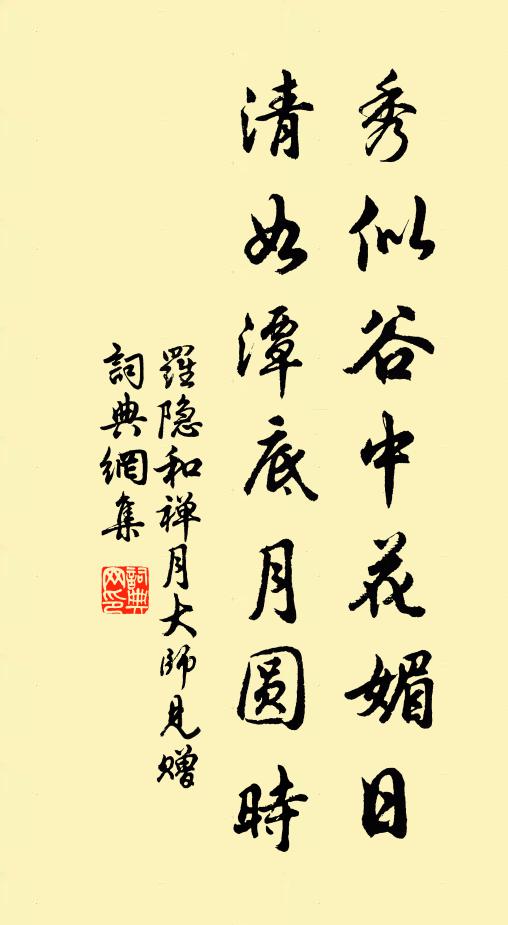 秀似谷中花媚日
清如潭底月圆時
羅隐和禅月大師見贈
詞典網集
詞典网印